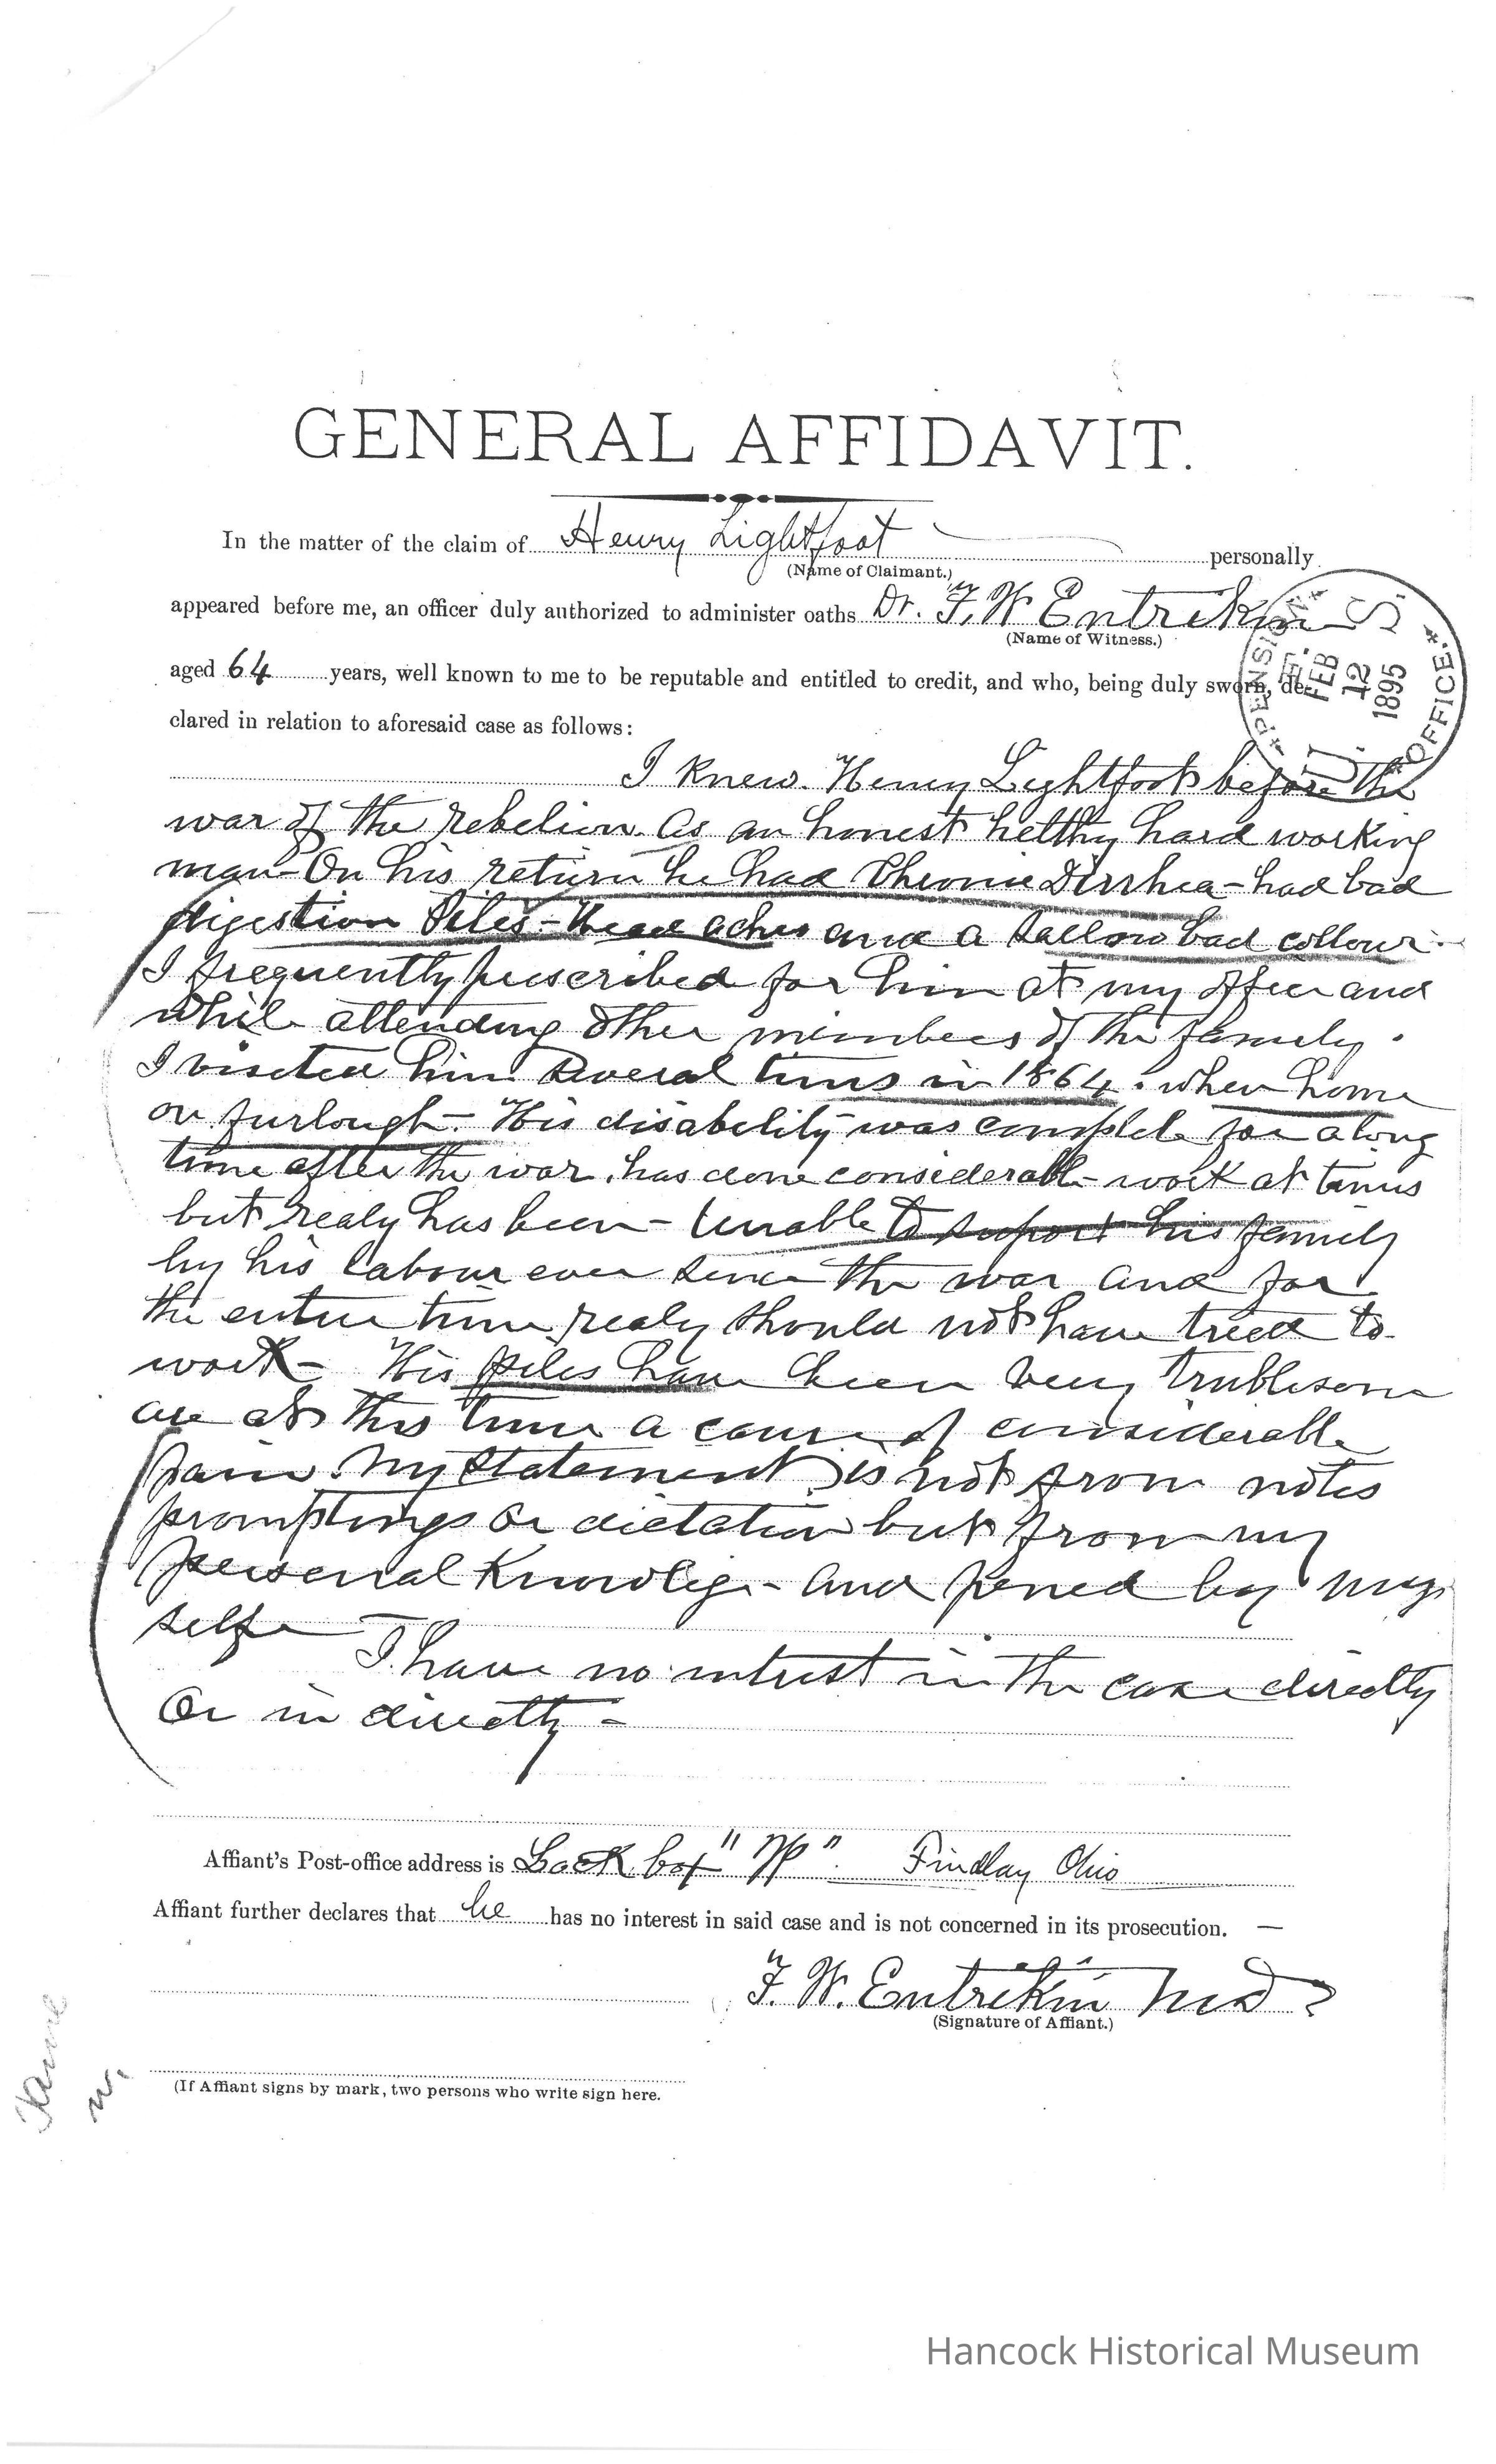 GENERAL AFFIDAVIT.
In the matter of the claim of Henry Lightfoot personally
(Name of Claimant.)
appeared before me, an officer duly authorized to administer oaths Dr. F. W Entrikin
(Name of Witness.)
aged 64 years, well known to me to be reputable and entitled to credit, and who, being duly sworn, de-
clared in relation to aforesaid case as follows:
U. S. PENSION OFFICE.
FEB
12
1895
I knew Henry Lightfoot before the
war of the rebelion as an honest helthy hard working
man - On his return he had Chronic Dirrhea - had bad
digestion Piles - Head aches and a sallow bad collour -
I frequently prescribed for him at my office and
while attending other members of the family.
I visited him several times in 1864. when home
on furlough - His disability was complete for a long
time after the war. has done considerable work at times
but realy has been - unable to suport his family
by his labour ever since the war and for
the entire time realy should not have tried to
work - His piles have been very trublesome
are at this time a cause of considerable
pain. My statement is not from notes
promptings or dictation but from my
personal Knowlege - and pened by my
self
I have no intrest in the case directly
or in directly -
Affiant's Post-office address is Lock box "N". Findlay Ohio
Affiant further declares that he has no interest in said case and is not concerned in its prosecution. —
F. W. Entrikin MD
(Signature of Affiant.)
(If Affiant signs by mark, two persons who write sign here.
Hancock Historical Museum